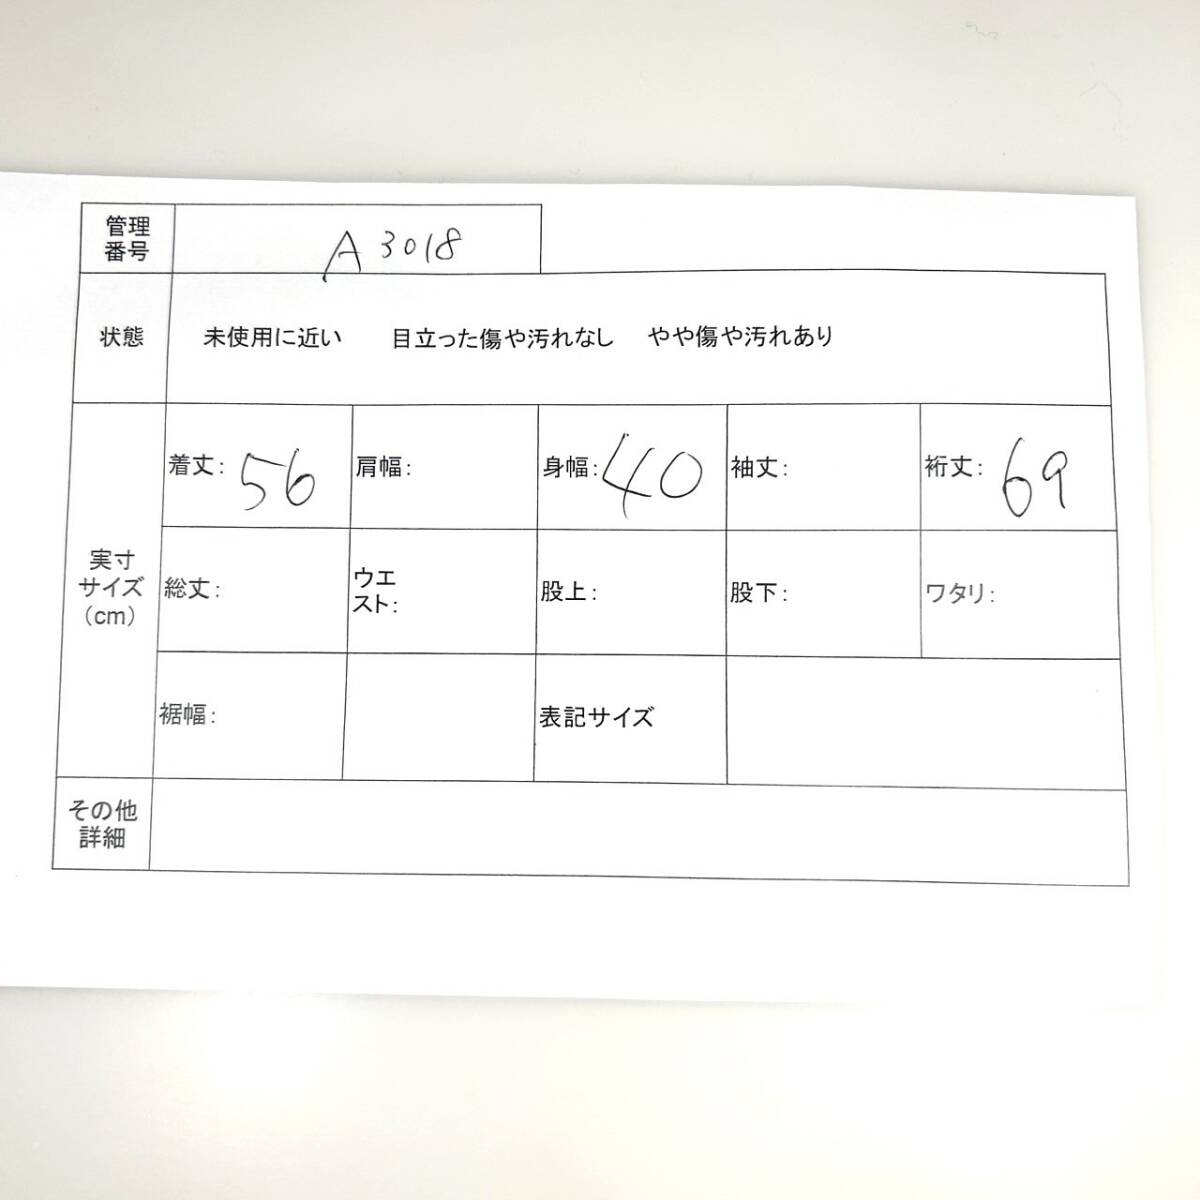 管理
番号
A3018
状態
未使用に近い 目立った傷や汚れなし やや傷や汚れあり
実寸
サイズ
（cm）
着丈：56
肩幅：
身幅：40
袖丈：
裄丈：69
総丈：
ウエ
スト：
股上：
股下：
ワタリ：
裾幅：
表記サイズ
その他
詳細